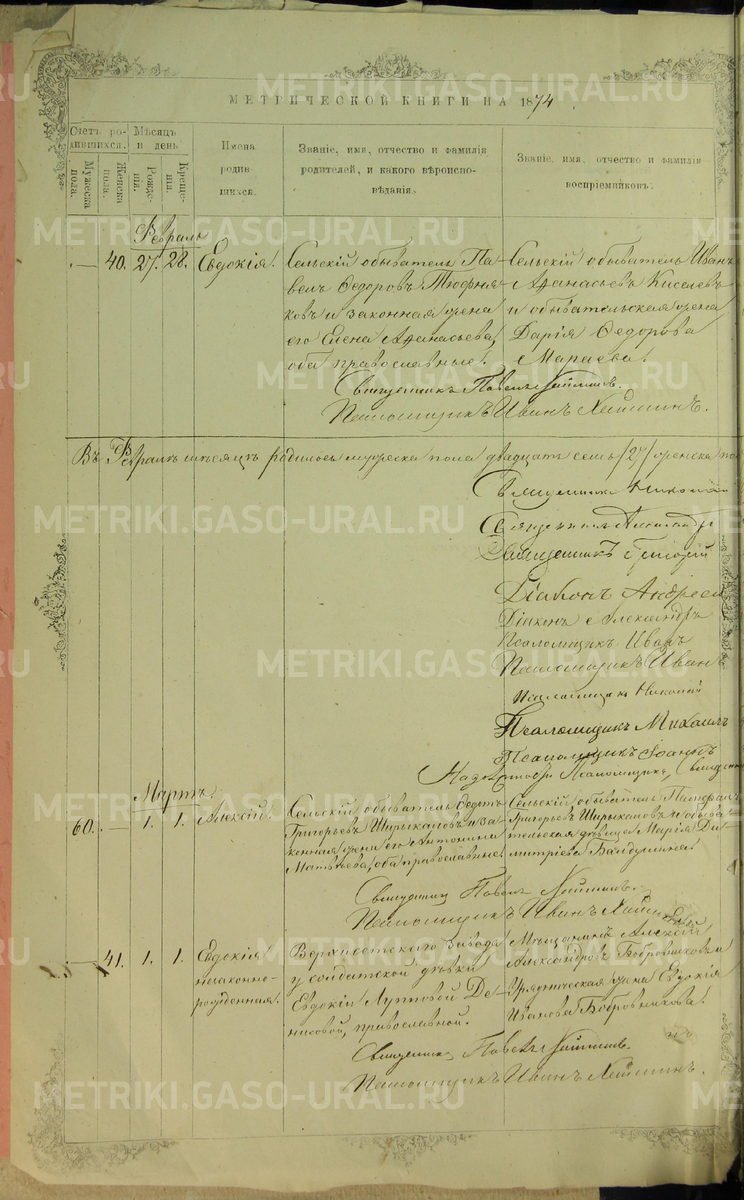 МЕТРИЧЕСКОЙ КНИГИ НА 1874
Счетъ родившихся.
Мужеска пола.
Женска пола.
Мѣсяцъ и день
Рожденія.
Крещенія.
Имена родившихся.
Званіе, имя, отчество и фамилія родителей, и какого вѣроисповѣданія.
Званіе, имя, отчество и фамилія воспріемниковъ.
Февраль
40. 27. 28. Евдокія.
Сельскій обыватель Па-
велъ Ѳедоровъ
ковъ и законная жена
его Елена Аѳанасьева,
оба православные.
Сельскій обыватель Иванъ
Аѳанасьевъ Киселевъ
и обывательская жена
Дарія Ѳедорова
Мараева.
Священникъ Павелъ
Псаломщикъ Иванъ
Въ Февралѣ мѣсяцѣ родилось мужеска пола двадцать семь /27/ женска по
Священникъ Николай
Священникъ Александр
Священникъ Григорій
Діаконъ Андрей
Діаконъ Александръ
Псаломщикъ Иванъ
Псаломщикъ Иван
Псаломщикъ Николай
Псаломщикъ Михаилъ
Псаломщикъ Іоаннъ
Псаломщика, Священ
Мартъ.
60. 1. 1. Алексій.
Сельскій обыватель
Григорьевъ Шрыкаловъ и за-
конная жена его Антонина
Матвѣева, оба православные.
Сельскій обыватель
Григорьевъ Шрыкаловъ и обыва-
тельская дѣвица Марія Ди-
митріева
Священникъ Павелъ
Псаломщикъ Иванъ
41. 1. 1. Евдокія
незаконно-
рожденная.
Верхисетскаго завода
у солдатской дѣвки
Евдокіи Лупповой Де-
нисовой, православной.
Мѣщанинъ Алексій
Александровъ Бобровниковъ и
Урядническая жена Евдокія
Иванова Бобровникова.
Священникъ Павелъ
Псаломщикъ Иванъ
METRIKI.GASO-URAL.RU